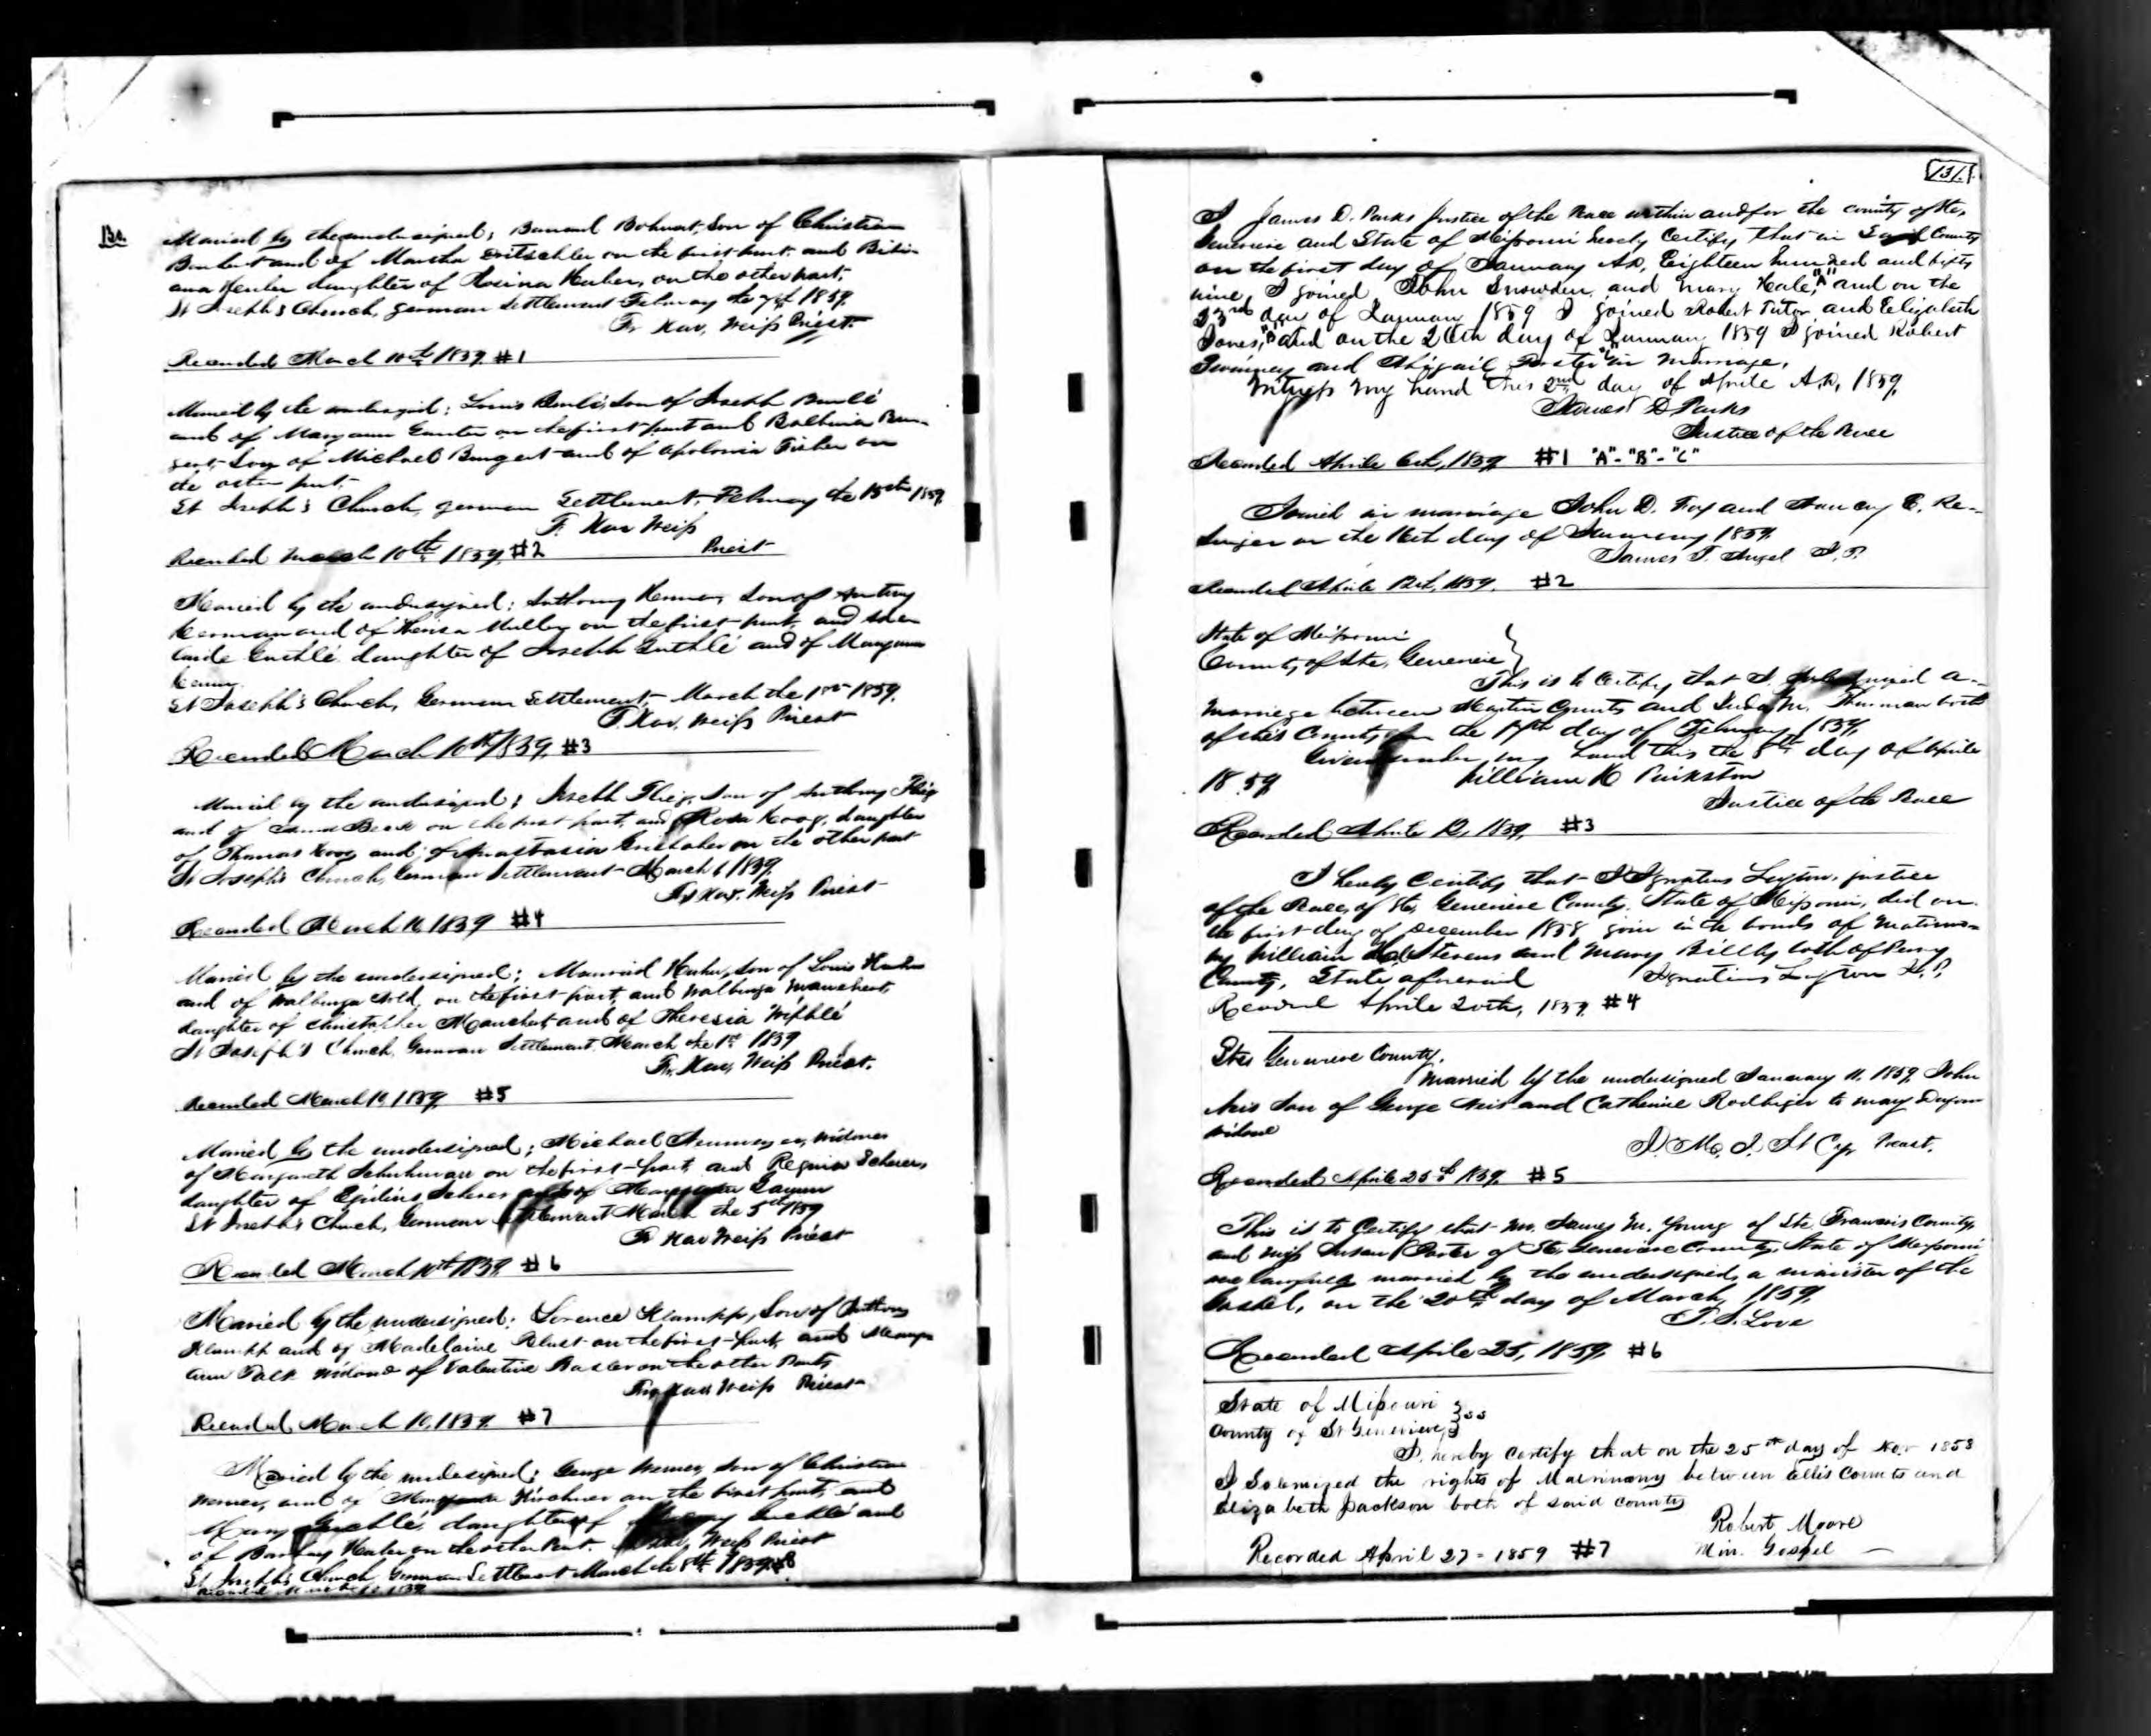 130.
Married by the undersigned; Bernard Bohnert, Son of Christian
Bonhert and of Martha Dritschler on the first part. and Bibi-
ana Kenler daughter of Rosina Kenler, on the other part;
St Joseph's Church, german Settlement February the 7th 1859.
Fr. Xav, Weiss Priest.
Recorded March 10th 1859. #1
Married by the undersigned; Louis Bauli, Son of Joseph Bauli
and of Maryann Ganter on the first part and Balbina Bun-
gert, Son of Michael Bungert and of Apolonia Fisher on
the other part.
St Joseph's Church, german Settlement, February the 15th 1859.
F. Xav Weiss
Priest
Recorded March 10th 1859. #2
Married by the undersigned; Anthony Kerman Son of Antony
Kerman and of Theresa Muller on the first part, and
laide Guethlé daughter of Joseph Guthlé and of Maryann
St Joseph's Church, German Settlement, March the 1st 1859.
F. Xav. Weiss Priest
Recorded March 10th 1859, #3
Married by the undersigned; Joseph Flieg, Son of Anthony Flieg
and of Beck on the first part, and Rosa Koog, daughter
of Thomas Koog and of Anastasia on the other part
St Joseph's Church, German Settlement March 6 1859.
Fr Xav. Weiss Priest
Recorded March 10 1859 #4
Married by the undersigned; Huhn, Son of Louis Huhn
and of Walburga Wold on the first part, and Walburga Manchert,
daughter of Christopher Manchert and of Theresia
St Joseph's Church, German Settlement March the 1st 1859
Fr. Xav, Weiss Priest.
Recorded March 10, 1859. #5
Married by the undersigned; Michael widower
of Margareth on the first part, and Regina Scherer,
daughter of Egidius Scherer and of
St Joseph's Church, German Settlement March the 5th 1859
Fr Xav Weiss Priest
Recorded March 10th 1859. #6
Married by the undersigned; Lorence Klumpp, Son of Anthony
Klumpp and of Madelaine on the first part, and Mary
Ann Falk Widow of Valentine Basler on the other Part,
Fr, Xav Weiss Priest
Recorded March 10, 1859. #7
Married by the undersigned; George Werner, Son of Christian
Werner, and of Kirchner on the first part, and
Mary daughter of and
of on the other Part. Weiss Priest
St Joseph's Church German Settlement March the 8th 1859 #8
Recorded March 10 1859
131.
I James D. Parks Justice of the Peace within and for the county of Ste,
Genevieve and State of Missouri hereby Certify that in Said County
on the first day of January AD, Eighteen hundred and fifty
nine, I joined John Snowden, and Mary Heale, "A" and on the
23rd day of January 1859 I joined Robert Tutor and Elizabeth
Jones, "B" and on the 26th day of January 1859 I joined Robert
Swinney and Abigail Porter "C" in marriage,
Witness my hand this 2nd day of Aprile A,D, 1859,
James D Parks
Justice of the Peace
Recorded Aprile 6th, 1859. #1 "A"-"B"-"C"
Joined in marriage John D. Fox and Nancy E. Re-
on the 16th day of January 1859.
James T. J.P.
Recorded Aprile 12th, 1859. #2
State of Missouri
County of Ste, Genevieve
This is to Certify that I. Solemnized a
Marriage between Martin Counts and M. Thurman both
of this County on the 17th day of February 1859,
Given under my hand this the 8th day of Aprile
1859 William H Pinkston
Justice of the Peace
Recorded Aprile 12, 1859. #3
I hereby Certify that I Ignatius Layton, justice
of the Peace, of Ste, Genevieve County. State of Missouri, did on
the first day of December 1858 join in the bonds of matrimo-
ny William Stevens and Mary Billey both of Perry
County, State aforesaid Ignatius Layton J.P.
Record Aprile 20th, 1859 #4
Ste, Genevieve County.
Married by the undersigned January 11. 1859, John
Neis Son of George Neis and Catherine to Mary
widow
J. M. I. St Cyr Priest.
Recorded Aprile 25th 1859. #5
This is to Certify that Mr. James M. Young of Ste. Francois County,
and Miss Susan Porter of Ste, Genevieve County, State of Missouri
was lawfully married by the undersigned, a minister of the
Gospel, on the 20th day of March 1859,
T. S. Love
Recorded Aprile 25, 1859, #6
State of Missouri
County of St Genevieve ss
I, hereby certify that on the 25th day of Nov 1858
I Solemnized the rights of Matrimony between Ellis Counts and
Elizabeth Jackson both of said county
Robert Moore
Min. Gospel
Recorded April 27 - 1859 #7